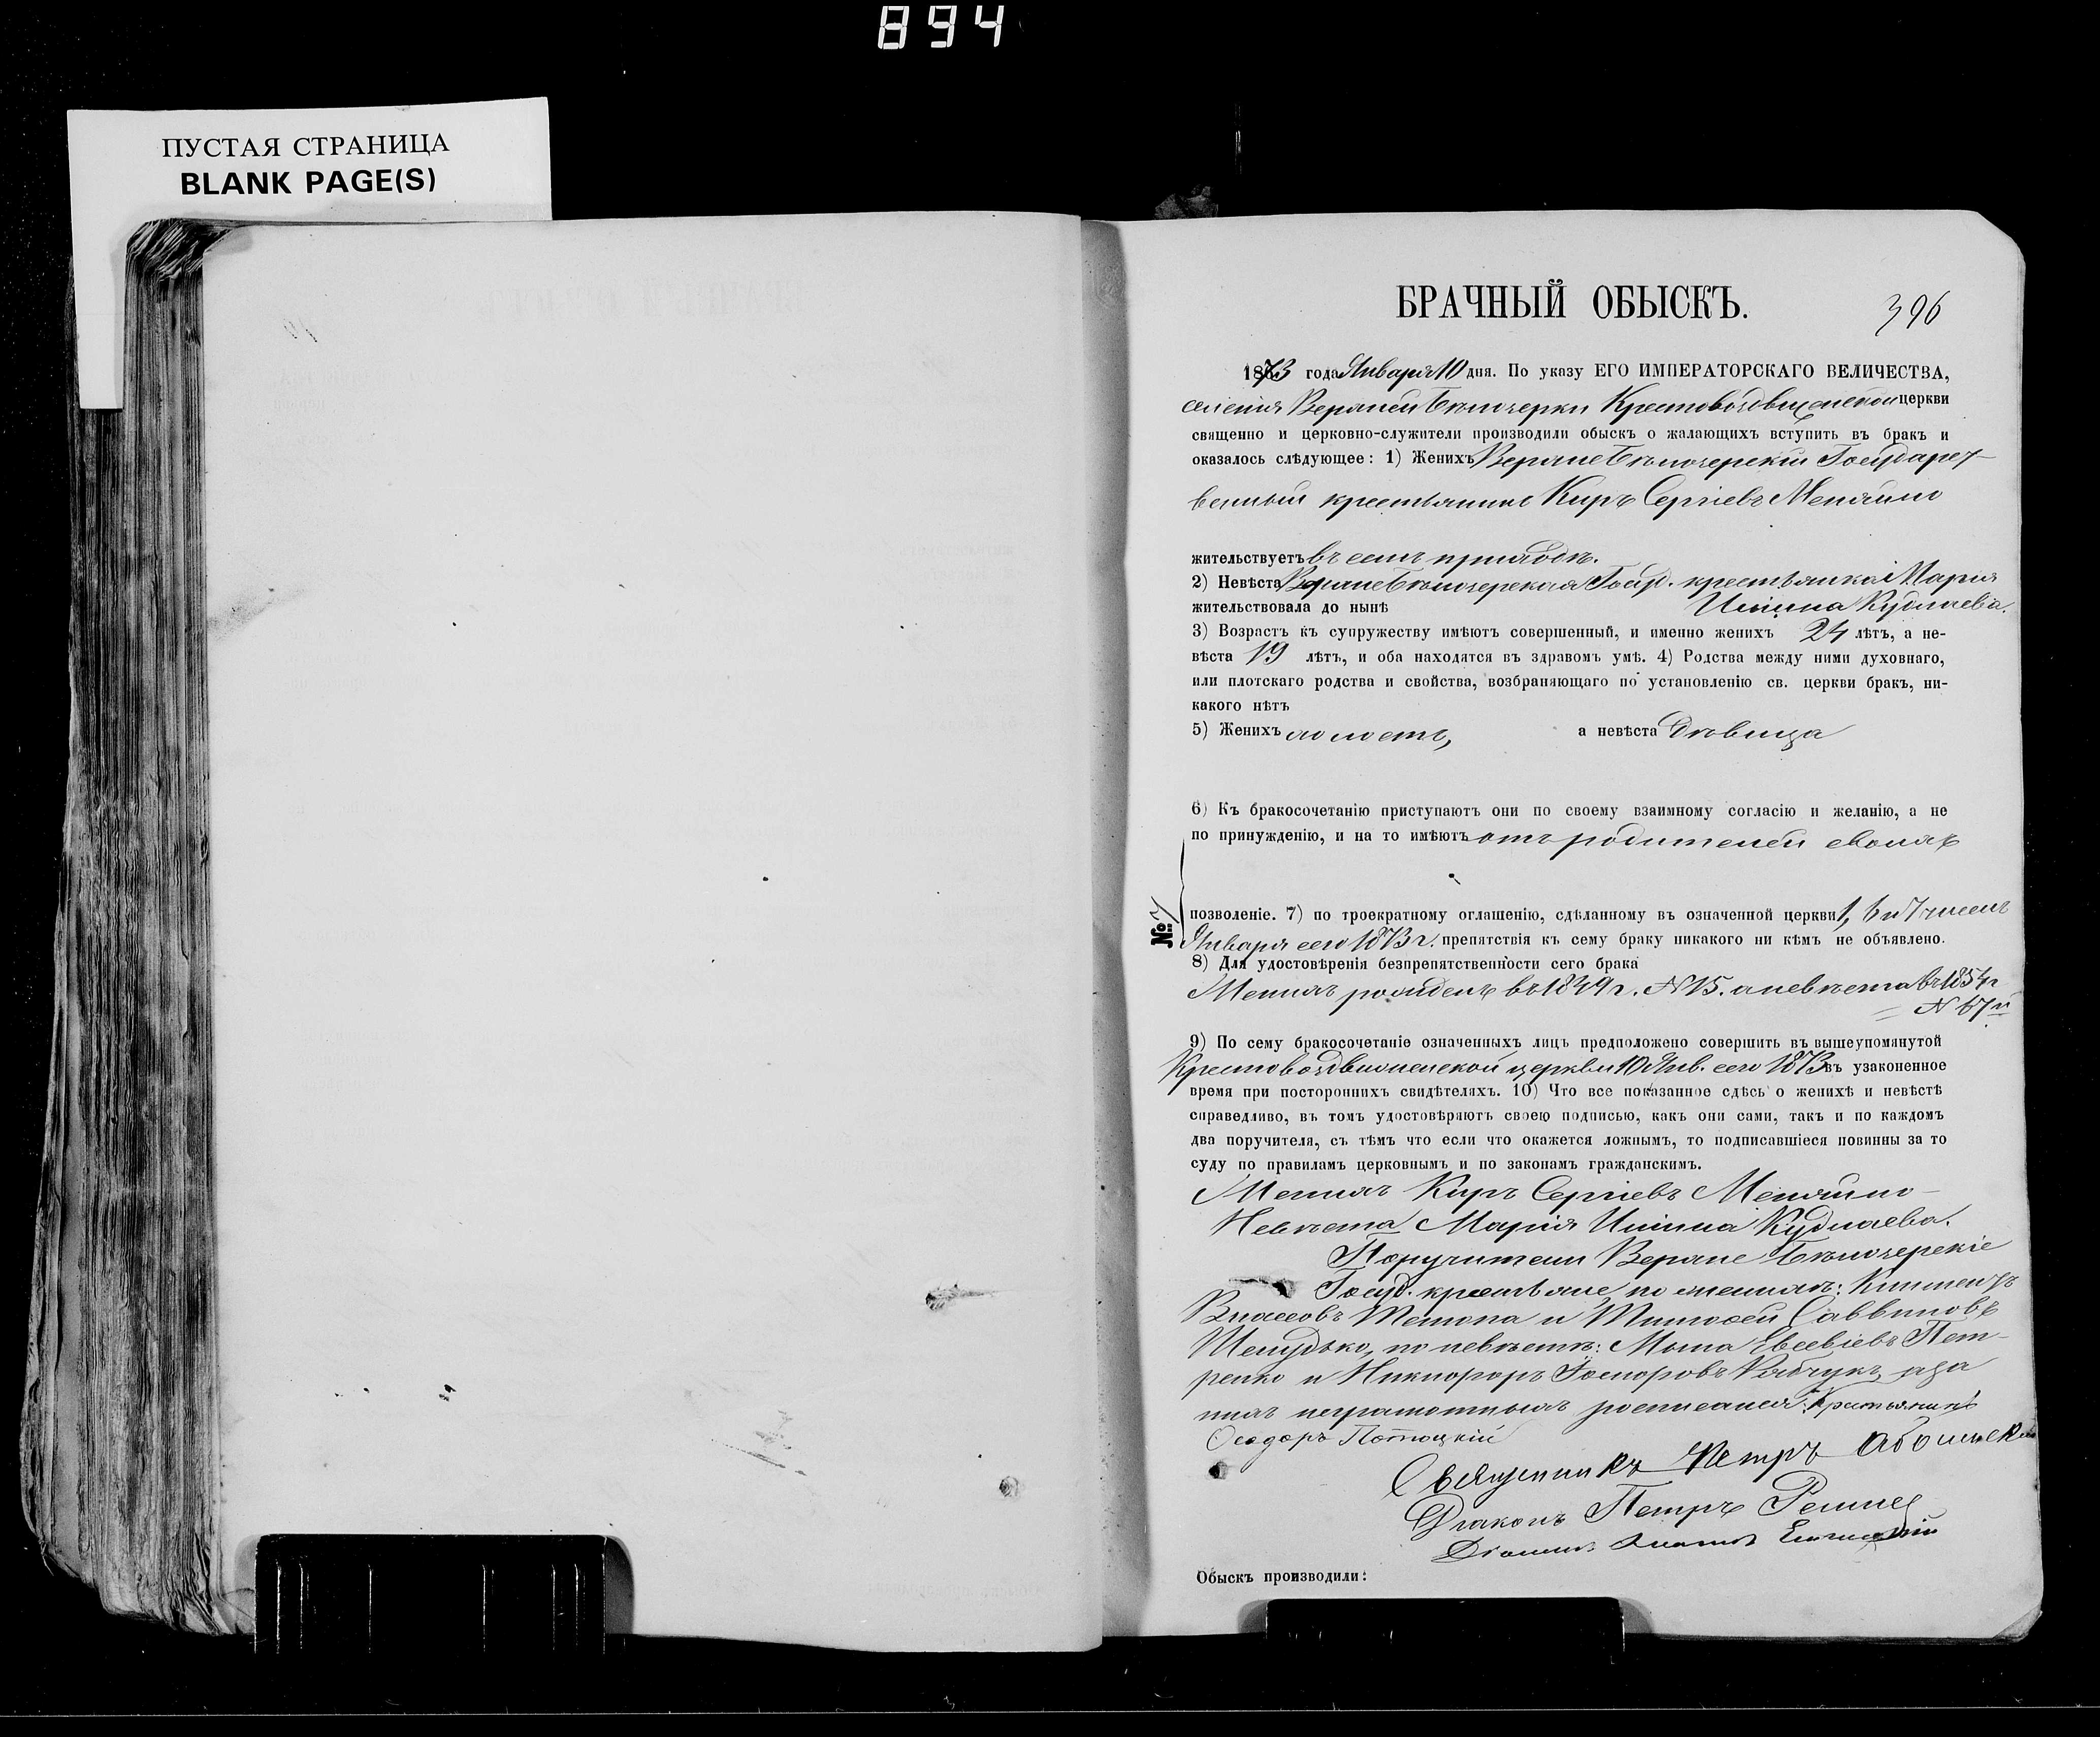 894
ПУСТАЯ СТРАНИЦА
BLANK PAGE(S)
БРАЧНЫЙ ОБЫСКЪ.
396
1873 года Января 10 дня. По указу ЕГО ИМПЕРАТОРСКАГО ВЕЛИЧЕСТВА,
селенія Верхней Бѣлозерки Крестовоздвиженской церкви
священно и церковно-служители производили обыскъ о жалающихъ вступить въ бракъ и
оказалось слѣдующее: 1) Женихъ Верхне Бѣлозерскій Государст-
венный крестьянинъ Киръ Сергіевъ
жительствуетъ въ семъ приходѣ.
2) Невѣста Верхне Бѣлозерская Госуд. крестьянка Марія
жительствовала до нынѣ
3) Возрастъ къ супружеству имѣютъ совершенный, и именно женихъ 24 лѣтъ, а не-
вѣста 19 лѣтъ, и оба находятся въ здравомъ умѣ. 4) Родства между ними духовнаго,
или плотскаго родства и свойства, возбраняющаго по установленію св. церкви бракъ, ни-
какого нѣтъ
5) Женихъ холостъ, а невѣста дѣвица
6) Къ бракосочетанію приступаютъ они по своему взаимному согласію и желанію, а не
по принужденію, и на то имѣютъ отъ родителей своихъ
позволеніе. 7) по троекратному оглашенію, сдѣланному въ означенной церкви 1, 6 и 7 чиселъ
№ 7
Января сего 1873 г. препятствія къ сему браку никакого ни кѣмъ не объявлено.
8) Для удостовѣренія безпрепятственности сего брака
Женихъ рожденъ въ 1849 г. № 15. а невѣста въ 1854 г
№ 67й
9) По сему бракосочетаніе означенныхъ лицъ предположено совершить въ вышеупомянутой
Крестовоздвиженской церкви 10 Янв. сего 1873 въ узаконенное
время при постороннихъ свидѣтеляхъ. 10) Что все показанное сдѣсь о женихѣ и невѣстѣ
справедливо, въ томъ удостовѣряютъ своею подписью, какъ они сами, такъ и по каждомъ
два поручителя, съ тѣмъ что если что окажется ложнымъ, то подписавшіеся повинны за то
суду по правиламъ церковнымъ и по законамъ гражданскимъ.
Женихъ Киръ Сергіевъ
Невѣста Марія
Поручители Верхне Бѣлозерскіе
Госуд. крестьяне, по женихѣ:
Власовъ и Тимофей Саввиновъ
по невѣстѣ: Евсевіевъ Пет-
ренко и Никифоръ Рябчукъ, а за
нихъ неграмотныхъ росписался: Крестьянинъ
Ѳеодоръ Потоцкій
Священникъ Петръ
Діаконъ Петръ
Обыскъ производили: